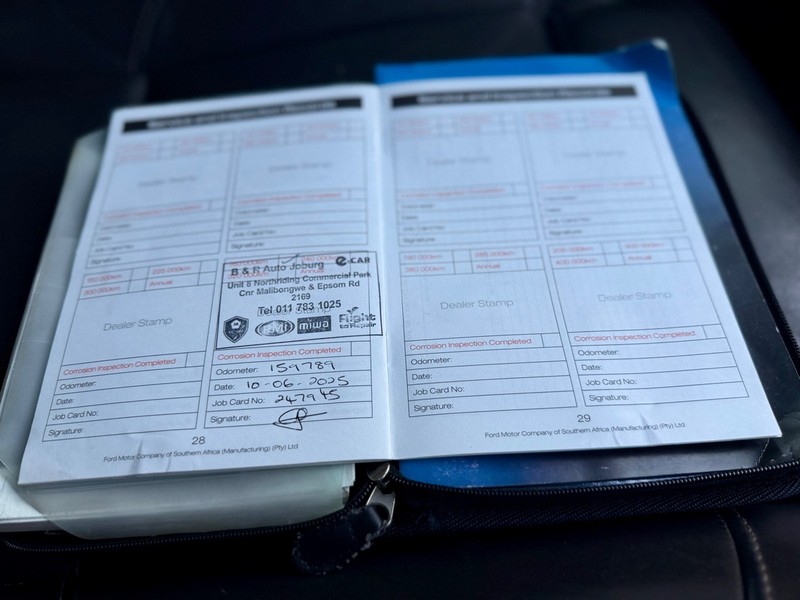 Service and Inspection Records
Dealer Stamp
Dealer Stamp
Corrosion Inspection Completed
Odometer:
Date:
Job Card No:
Signature:
Corrosion Inspection Completed
Odometer:
Date:
Job Card No:
Signature:
225 000km
300 000km
Annual
Dealer Stamp
Corrosion Inspection Completed
Odometer:
Date:
Job Card No:
Signature:
B & R Auto Joburg
e-CAR
Unit 8 Northriding Commercial Park
Cnr Malibongwe & Epsom Rd
2169
Tel 011 783 1025
RMI
miwa
Right
to Repair
Corrosion Inspection Completed
Odometer: 159789
Date: 10-06-2025
Job Card No: 247945
Signature:
28
Ford Motor Company of Southern Africa (Manufacturing) (Pty) Ltd
Service and Inspection Records
Dealer Stamp
Dealer Stamp
Corrosion Inspection Completed
Odometer:
Date:
Job Card No:
Signature:
Corrosion Inspection Completed
Odometer:
Date:
Job Card No:
Signature:
190 000km
285 000km
380 000km
Annual
Dealer Stamp
Corrosion Inspection Completed
Odometer:
Date:
Job Card No:
Signature:
300 000km
400 000km
Annual
Dealer Stamp
Corrosion Inspection Completed
Odometer:
Date:
Job Card No:
Signature:
29
Ford Motor Company of Southern Africa (Manufacturing) (Pty) Ltd